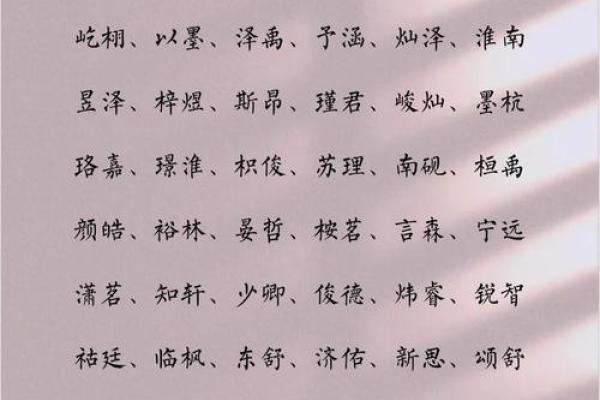 屹栩、以墨、泽禹、予涵、灿泽、淮南
昱泽、梓煜、斯昂、瑾君、峻灿、墨杭
珞嘉、璟淮、枳俊、苏理、南砚、桓禹
颜皓、裕林、晏哲、桉茗、言森、宁远
潇茗、知轩、少卿、俊德、炜睿、锐智
祜廷、临枫、东舒、济佑、新思、颂舒